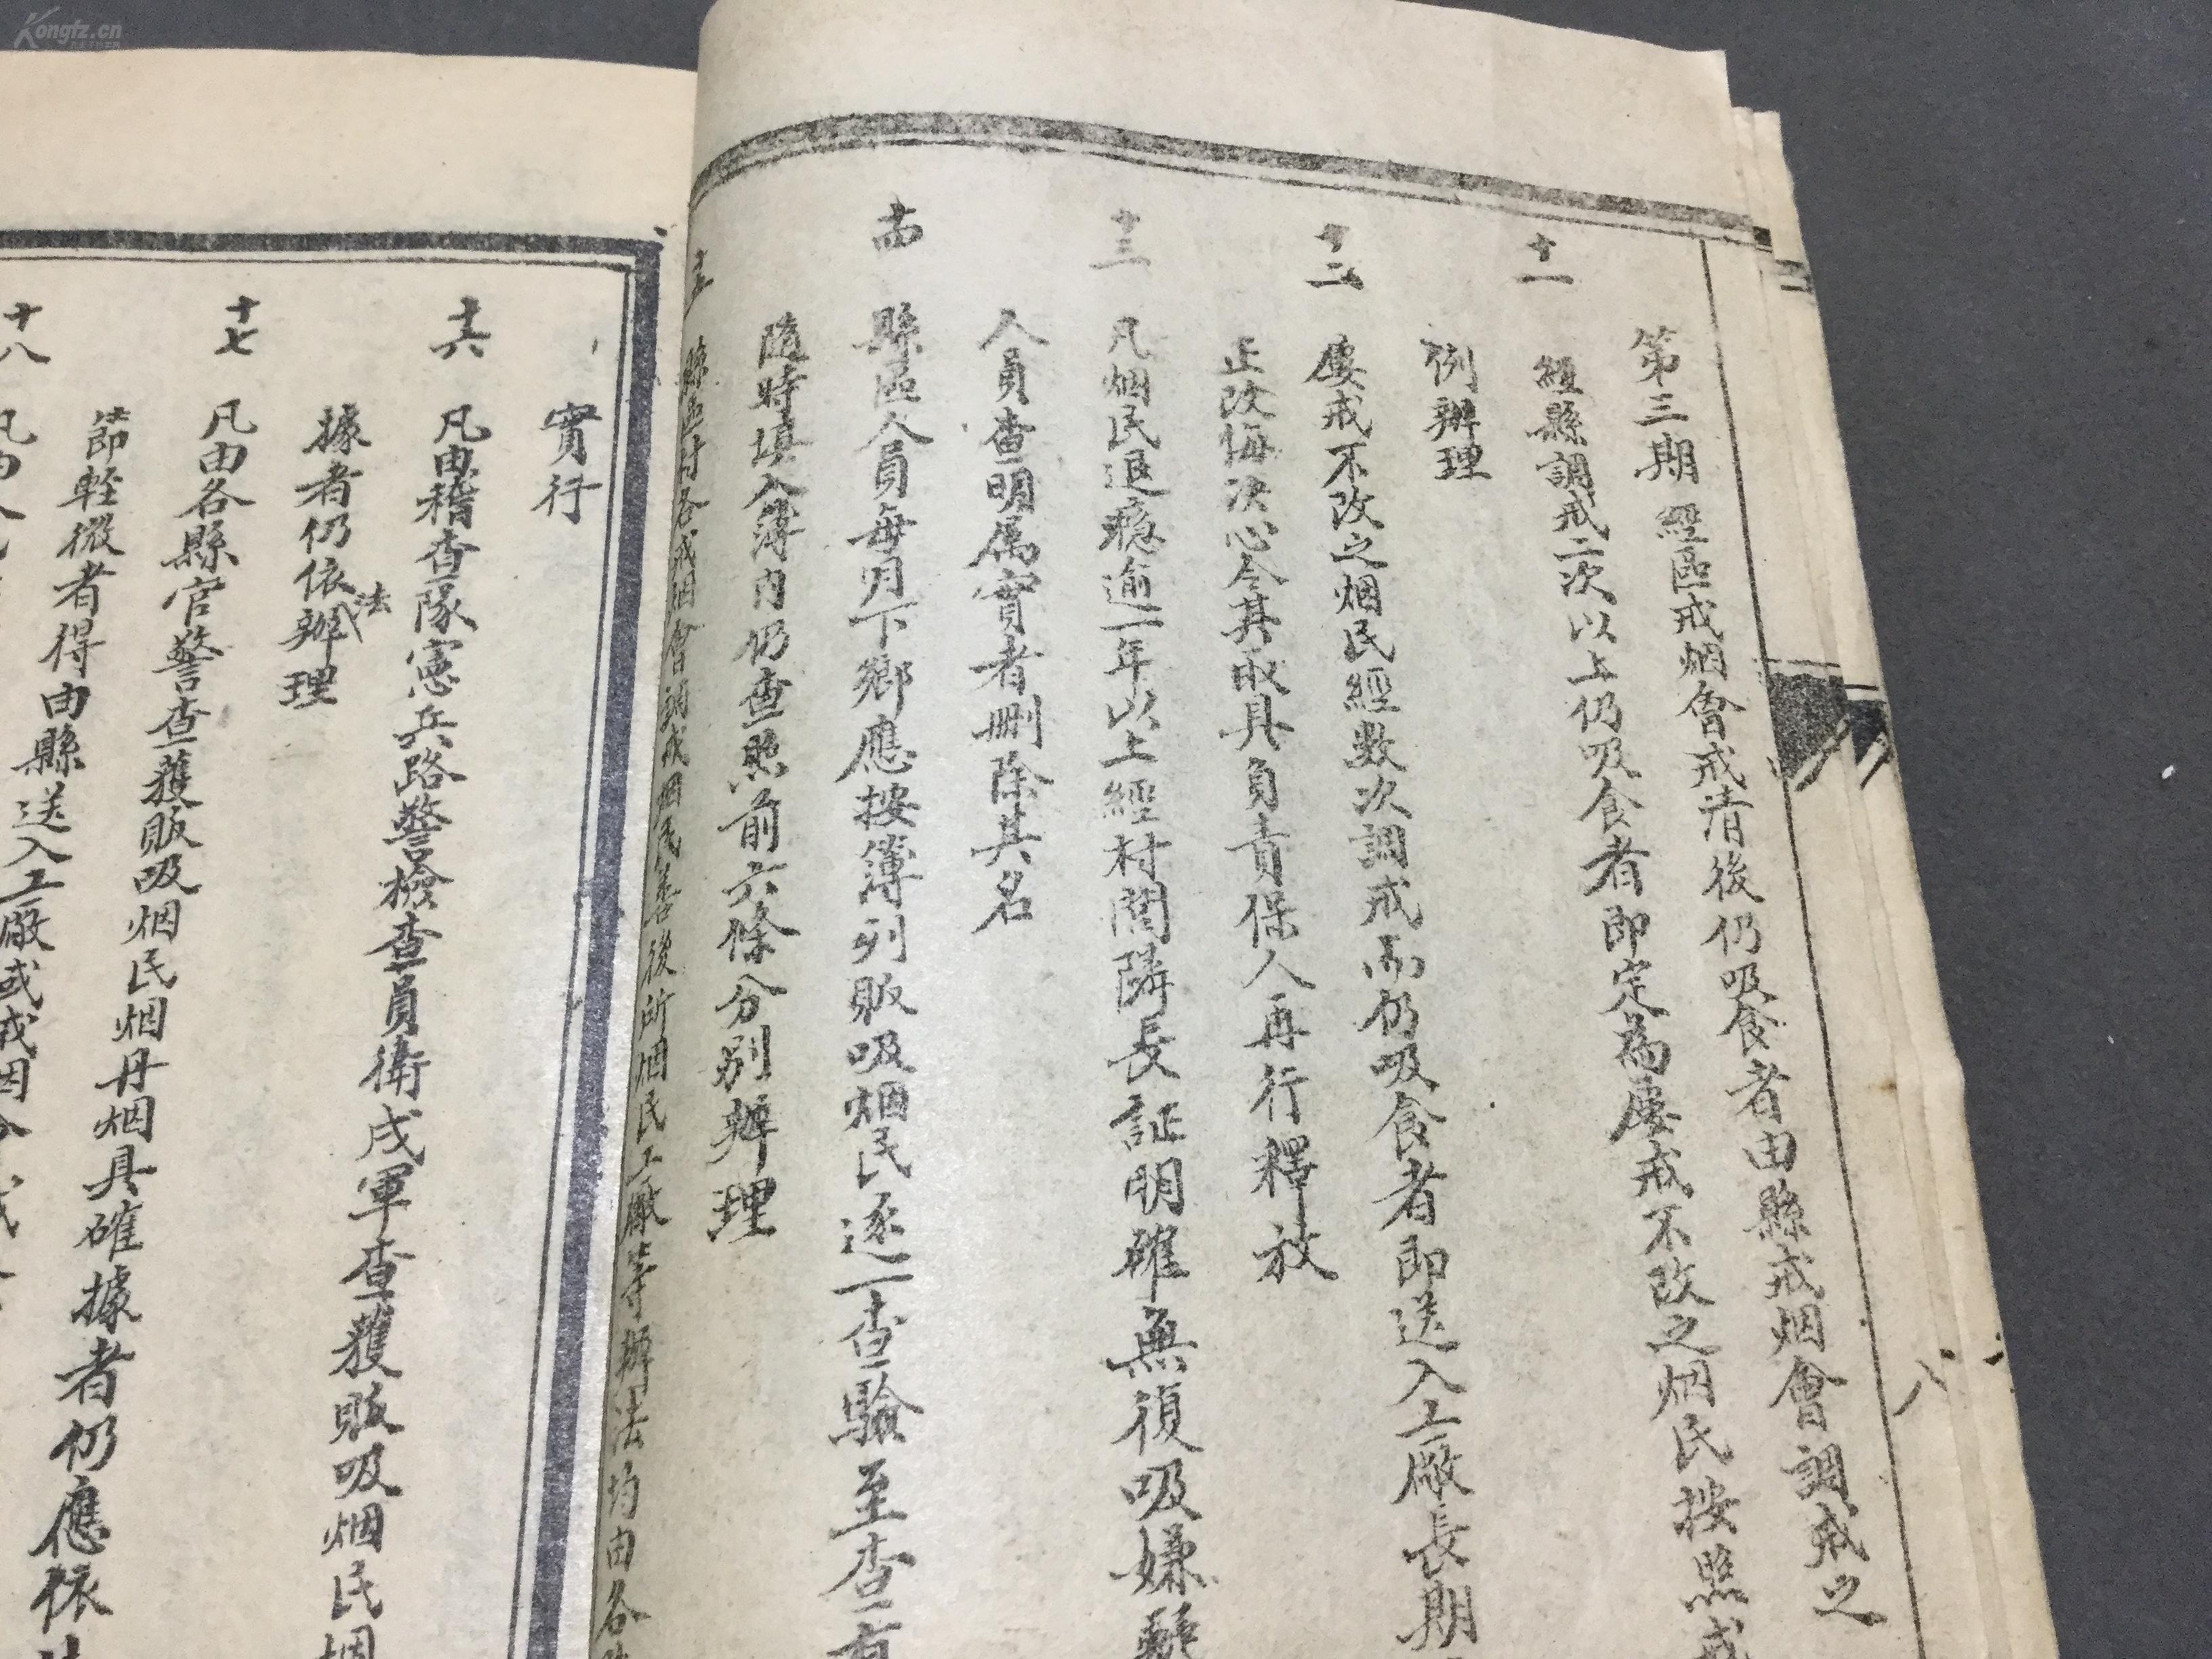 第三期 經區戒烟會戒清後仍吸食者由縣戒烟會調戒之
十一 經縣調戒二次以上仍吸食者即定為屡戒不改之烟民按照戒
例辦理
十二 屡戒不改之烟民經数次調戒而仍吸食者即送入工廠長期
正改悔决心令其取具負責保人再行釋放
十三 凡烟民退瘾逾一年以上經村閭隣長証明確無復吸嫌疑
人員查明属實者删除其名
十四 縣區人員每月下鄉應按簿列販吸烟民逐一查驗至查有
隨時填入簿内仍查照前六條分别辦理
十五 縣區村各戒烟會調戒烟民善後所烟民工廠等辦法均由各
實行
十六 凡由稽查隊憲兵路警檢查員衛戍軍查獲販吸烟民烟
據者仍依法辦理
十七 凡由各縣官警查獲販吸烟民烟丹烟具確據者仍應依
節輕微者得由縣送入工廠或戒烟會戒
十八 凡由人民
八
Kongfz.cn